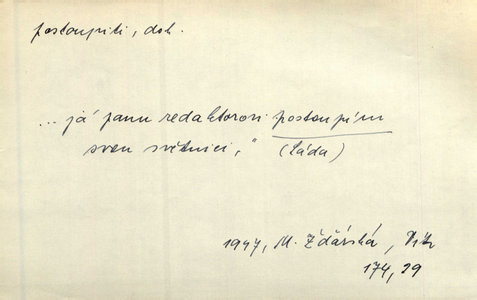 postoupiti, dok.
... já panu redaktorovi postoupím
svou světnici," (Láďa)
1947, M. Žďárská, Vítr
174, 29